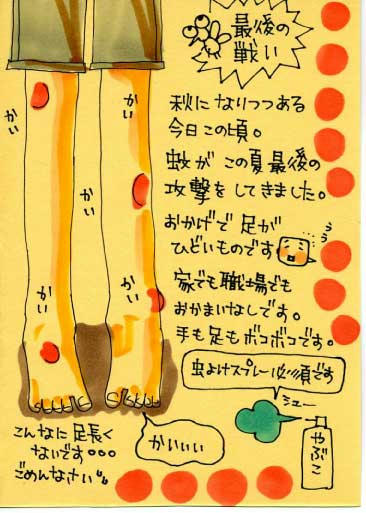 最後の
戦い
秋になりつつある
今日この頃。
蚊がこの夏最後の
攻撃をしてきました。
おかげで足が
ひどいものです
うぅ
家でも職場でも
おかまいなしです。
手も足もボコボコです。
虫よけスプレー必須です
シュー
やぶこ
かい
かい
かい
かい
かい
かいいい
こんなに足長く
ないです。。。
ごめんなさい